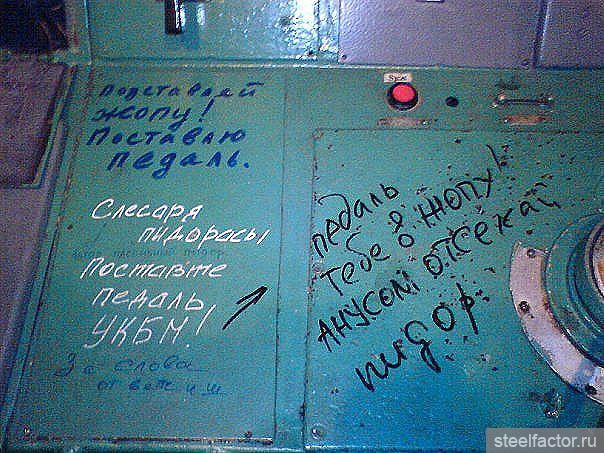 Подставляй
жопу!
Поставлю
педаль.
Слесаря
пидорасы
Поставте
педаль,
УКБМ!
За слова
ответиш
педаль
тебе в жопу!
Анусом отсекай
пидор.
steelfactor.ru